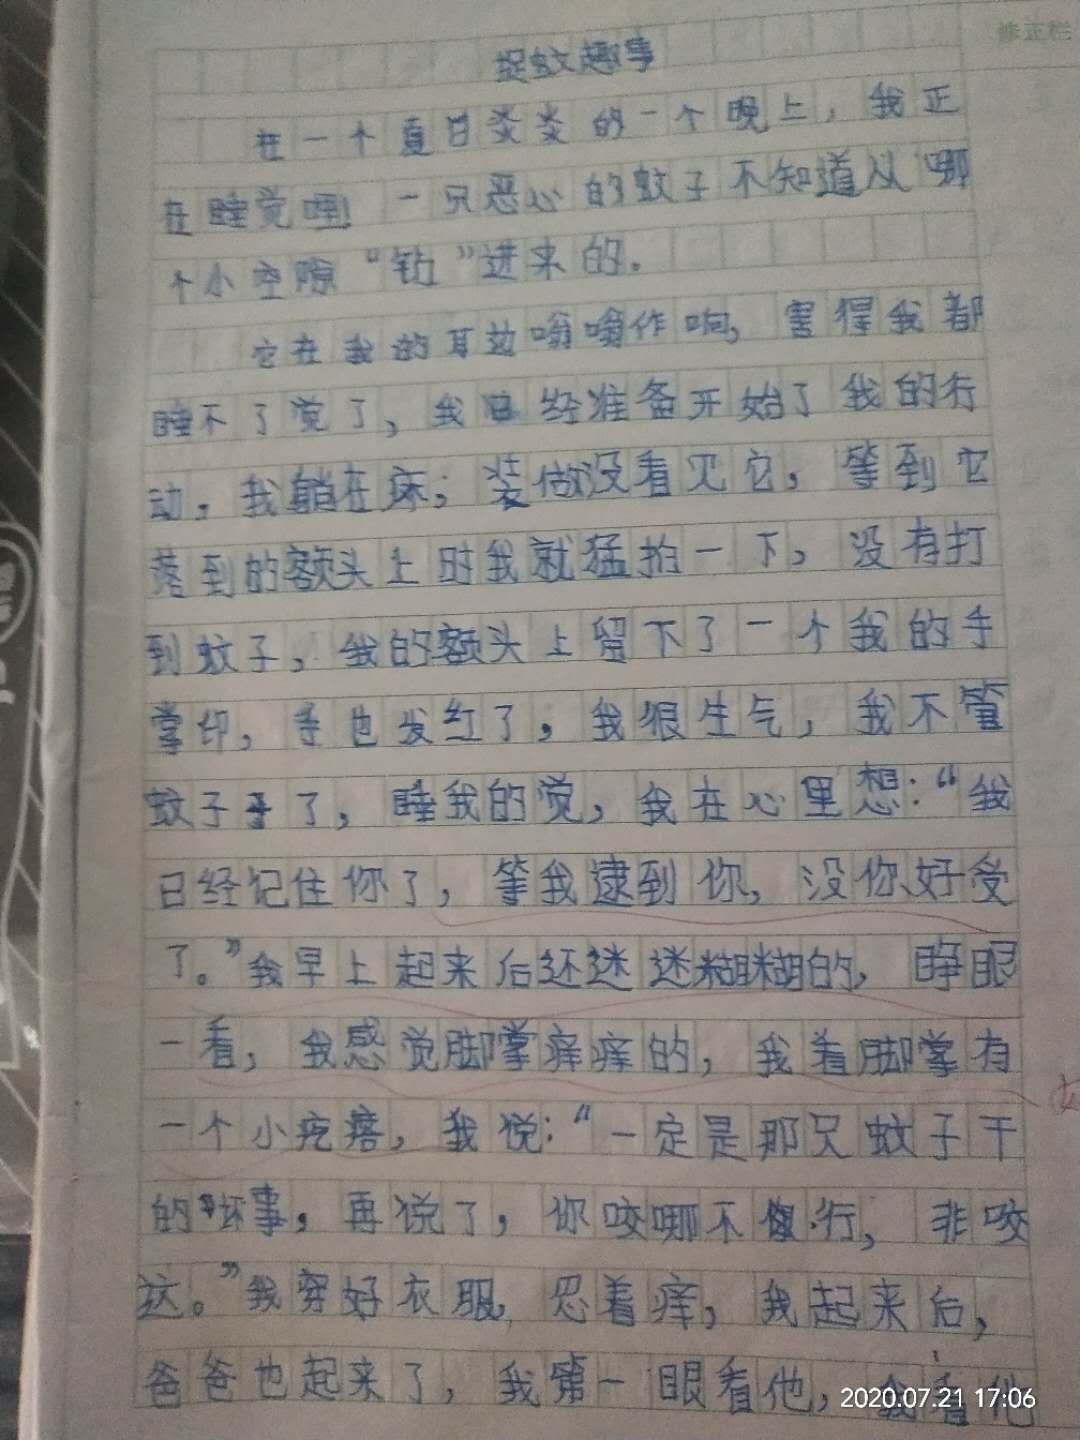 修正栏
捉蚊趣事
在一个夏日炎炎的一个晚上，我正
在睡觉哩！一只恶心的蚊子不知道从哪
个小空隙“钻”进来的。
它在我的耳边嗡嗡作响，害得我都
睡不了觉了，我已经准备开始了我的行
动，我躺在床；装做没看见它，等到它
落到的额头上时我就猛拍一下，没有打
到蚊子，我的额头上留下了一个我的手
掌印，手也发红了，我很生气，我不管
蚊子了，睡我的觉，我在心里想：“我
已经记住你了，等我逮到你，没你好受
了。”我早上起来后还迷迷糊糊的，睁眼
一看，我感觉脚掌痒痒的，我看脚掌有
一个小疙瘩，我说：“一定是那只蚊子干
的坏事，再说了，你咬哪不行，非咬
这。”我穿好衣服，忍着痒，我起来后，
爸爸也起来了，我第一眼看他，我看他
2020.07.21 17:06